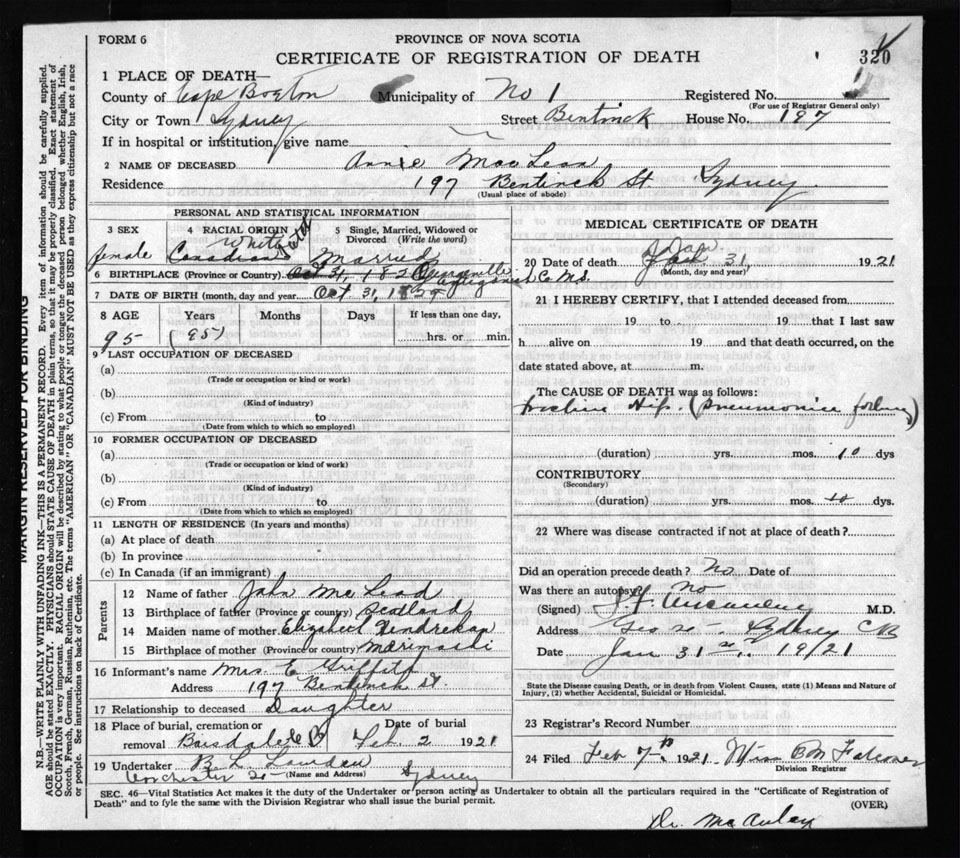 FORM 6
PROVINCE OF NOVA SCOTIA
CERTIFICATE OF REGISTRATION OF DEATH
320
1 PLACE OF DEATH—
County of Cape Breton Municipality of No 1 Registered No.
(For use of Registrar General only)
City or Town Sydney Street Bentinck House No. 197
If in hospital or institution, give name
2 NAME OF DECEASED Annie MacLean
Residence 197 Bentinck St. Sydney
(Usual place of abode)
PERSONAL AND STATISTICAL INFORMATION
3 SEX 4 RACIAL ORIGIN 5 Single, Married, Widowed or Divorced (Write the word)
female White Canadian Married
6 BIRTHPLACE (Province or Country)
7 DATE OF BIRTH (month, day and year) Oct 31,
8 AGE Years Months Days If less than one day,
95 (95) hrs. or min.
9 LAST OCCUPATION OF DECEASED
(a)
(Trade or occupation or kind or work)
(b)
(Kind of industry)
(c) From to
(Date from which to which so employed)
10 FORMER OCCUPATION OF DECEASED
(a)
(Trade or occupation or kind of work)
(b)
(Kind of industry)
(c) From to
(Date from which to which so employed)
11 LENGTH OF RESIDENCE (In years and months)
(a) At place of death
(b) In province
(c) In Canada (if an immigrant)
Parents
12 Name of father John McLeod
13 Birthplace of father (Province or country) Scotland
14 Maiden name of mother
15 Birthplace of mother (Province or country)
16 Informant's name Mrs. E Griffith
Address 197 Bentinck St.
17 Relationship to deceased Daughter
18 Place of burial, cremation or removal Date of burial
Feb. 2 1921
19 Undertaker
(Name and Address) Sydney
MEDICAL CERTIFICATE OF DEATH
20 Date of death Jan 31 1921
(Month, day and year)
21 I HEREBY CERTIFY, that I attended deceased from
19 to 19 that I last saw
h alive on 19 and that death occurred, on the
date stated above, at m.
The CAUSE OF DEATH was as follows:
Hip (Pneumonia
(duration) yrs. mos. 10 dys
CONTRIBUTORY
(Secondary)
(duration) yrs. mos. 10 dys.
22 Where was disease contracted if not at place of death?
Did an operation precede death? No Date of
Was there an autopsy? No
(Signed) M.D.
Address Sydney CB
Date Jan 31st 1921
State the Disease causing Death, or in death from Violent Causes, state (1) Means and Nature of Injury, (2) whether Accidental, Suicidal or Homicidal.
23 Registrar's Record Number
24 Filed Feb 7th 1921 Miss
Division Registrar
SEC. 46—Vital Statistics Act makes it the duty of the Undertaker or person acting as Undertaker to obtain all the particulars required in the "Certificate of Registration of
Death" and to fyle the same with the Division Registrar who shall issue the burial permit.
(OVER)
Dr. McAuley
MARGIN RESERVED FOR BINDING
N.B.—WRITE PLAINLY WITH UNFADING INK—THIS IS A PERMANENT RECORD. Every item of information should be carefully supplied.
AGE should be stated EXACTLY. PHYSICIANS should STATE CAUSE OF DEATH in plain terms, so that it may be properly classified. Exact statement of
OCCUPATION is very important. RACIAL ORIGIN will be described by stating to what people or tongue the deceased person belonged whether English, Irish,
Scotch, French, German, Russian, Ruthenian, etc. The terms "AMERICAN" OR "CANADIAN" MUST NOT BE USED as they express citizenship but not a race
or people. See instructions on back of Certificate.